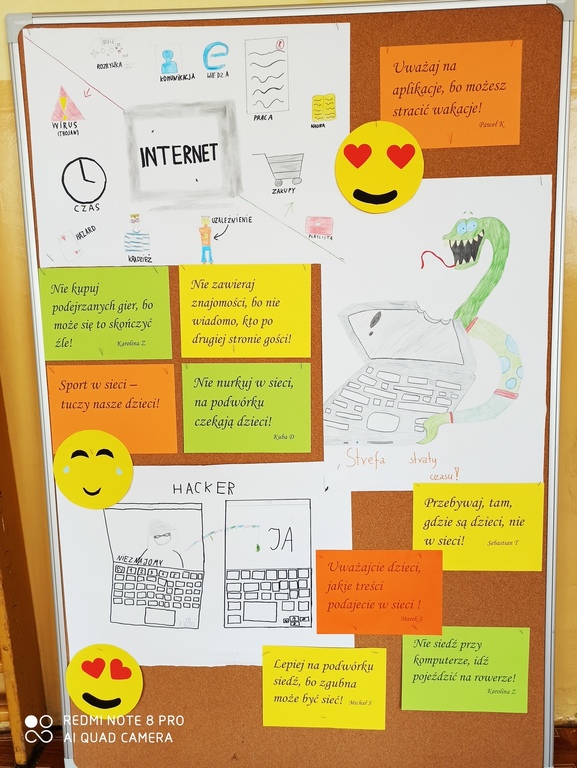 ROZRYWKA
KOMUNIKACJA
WIEDZA
PRACA
NAUKA
WIRUS
(TROJAN)
INTERNET
CZAS
ZAKUPY
HAZARD
KRADZIEŻ
UZALEŻNIENIE
Uważaj na
aplikacje, bo możesz
stracić wakacje!
Paweł K
Nie kupuj
podejrzanych gier, bo
może się to skończyć
źle!
Karolina Z
Nie zawieraj
znajomości, bo nie
wiadomo, kto po
drugiej stronie gości!
Sport w sieci –
tuczy nasze dzieci!
Nie nurkuj w sieci,
na podwórku
czekają dzieci!
Kuba D
Strefa straty
czasu!
HACKER
NIEZNAJOMY
JA
Przebywaj, tam,
gdzie są dzieci, nie
w sieci!
Sebastian T
Uważajcie dzieci,
jakie treści
podajecie w sieci !
Marek S
Nie siedź przy
komputerze, idź
pojeździć na rowerze!
Karolina Z
Lepiej na podwórku
siedź, bo zgubna
może być sieć!
Michał S
REDMI NOTE 8 PRO
AI QUAD CAMERA